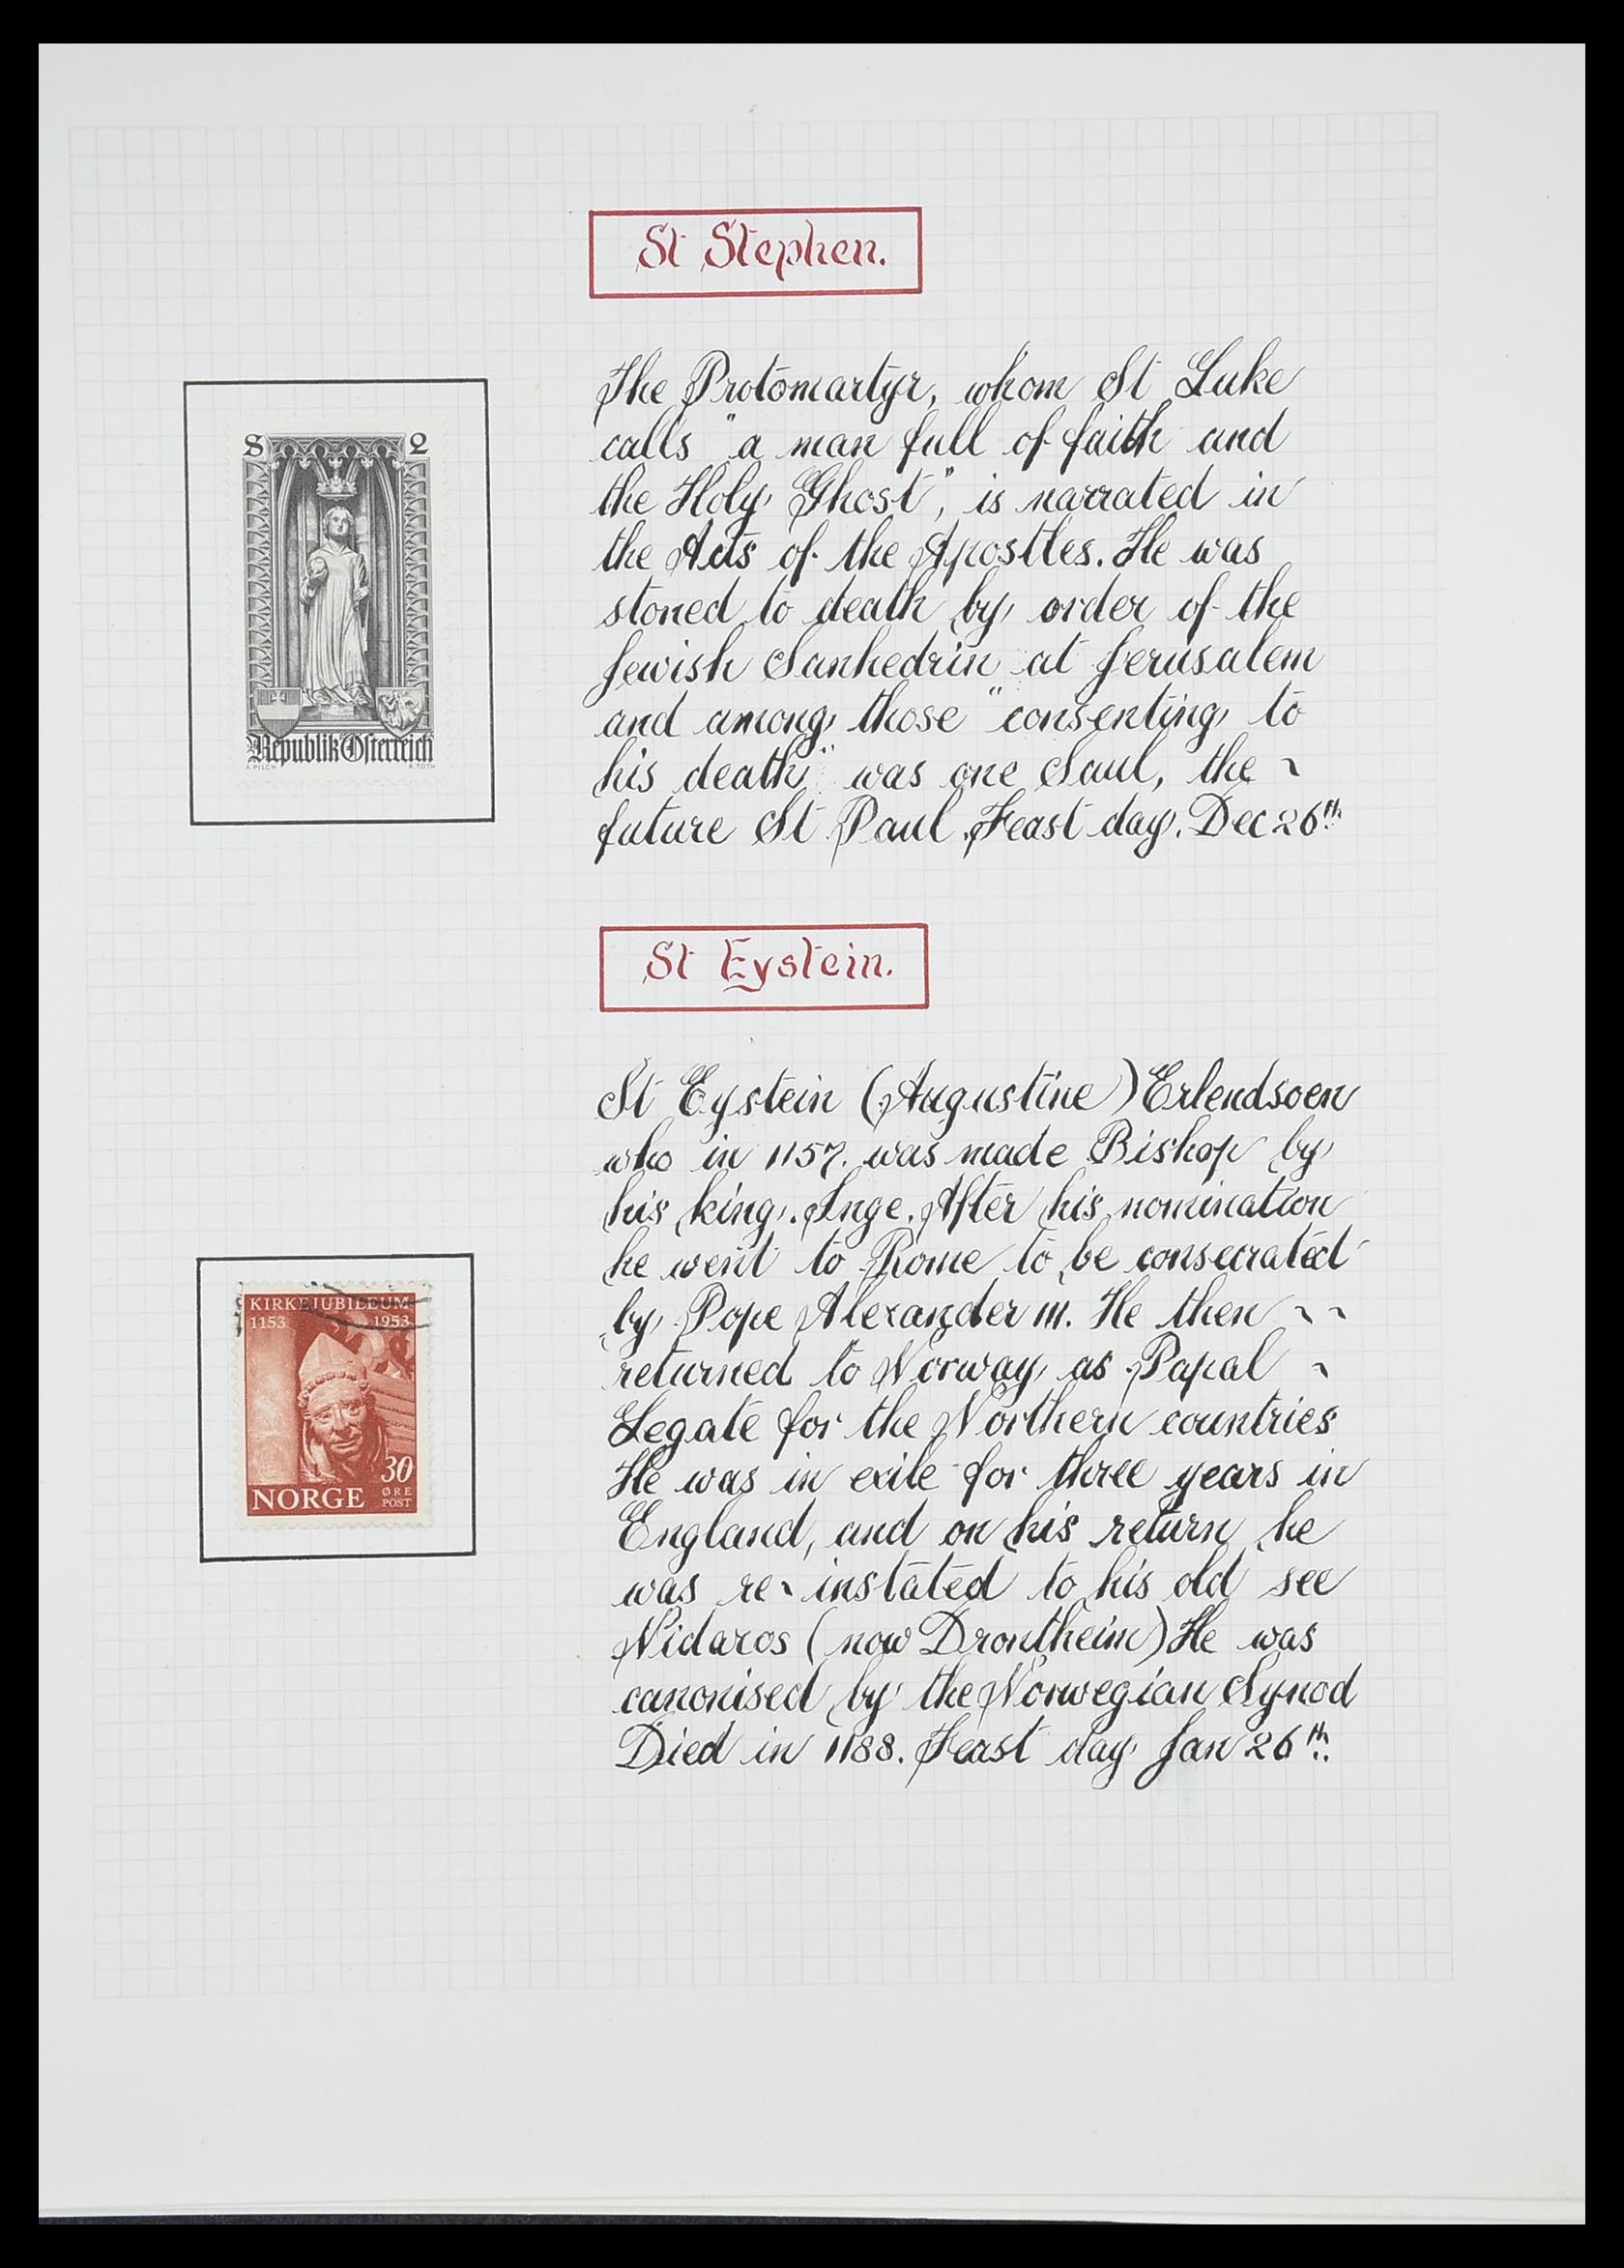 St Stephen.
The Protomartyr, whom St Luke
calls "a man full of faith and
the Holy Ghost", is narrated in
the Acts of the Apostles. He was
stoned to death by order of the
Jewish Sanhedrin at Jerusalem
and among those "consenting to
his death" was one Saul, the ~
future St Paul. Feast day. Dec 26th
S 2
Republik Österreich
A. PILCH R. TOTH
St Eystein.
St Eystein (Augustine) Erlendsoen
who in 1157. was made Bishop by
his king. Inge. After his nomination
he went to Rome to be consecrated
by Pope Alexander III. He then ~ ~
returned to Norway as Papal ~
Legate for the Northern countries
He was in exile for three years in
England, and on his return he
was re-instated to his old see
Nidaros (now Drontheim) He was
canonised by the Norwegian Synod
Died in 1188. Feast day Jan 26th.
KIRKEJUBILEUM
1153 1953
30
NORGE ØRE
POST